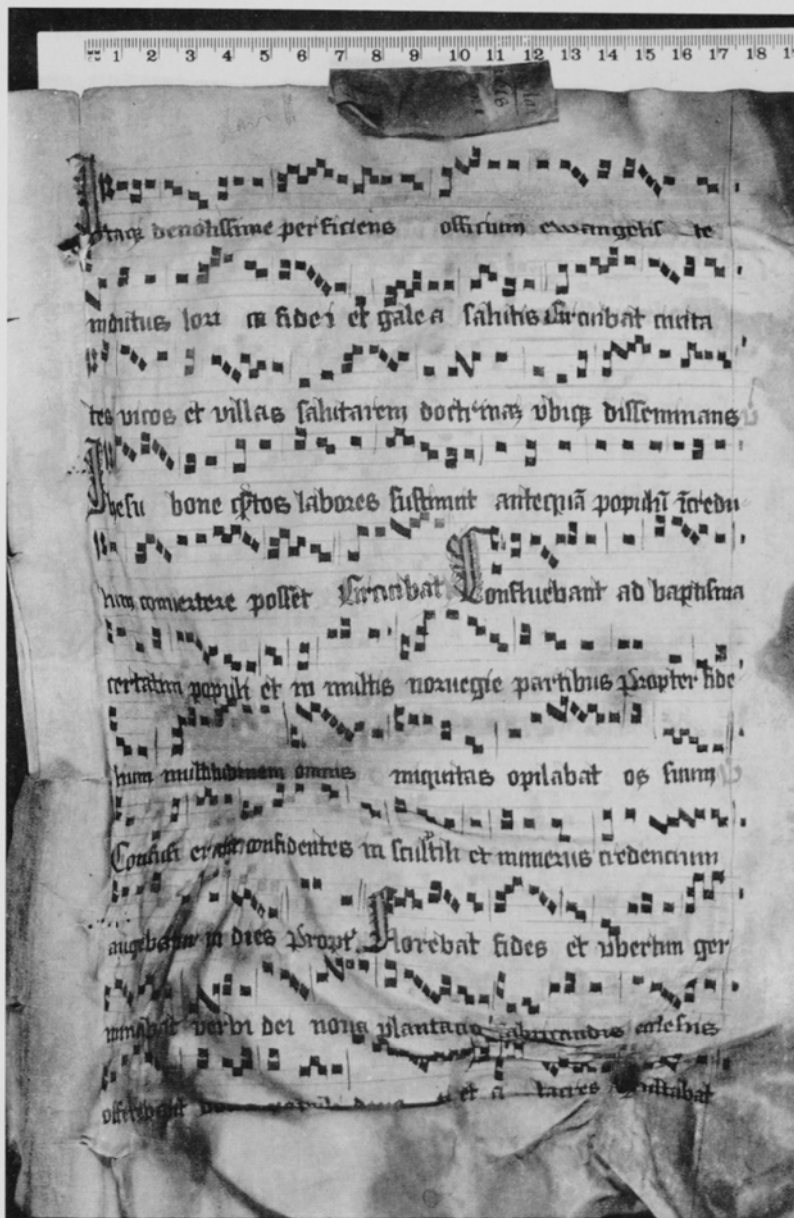 1 2 3 4 5 6 7 8 9 10 11 12 13 14 15 16 17 18 19
Itaq deuotissime perficiens officium ewangeliste
indutus lorica fidei et galea salutis Circuibat ciuita
tes vicos et villas salutarem doctrinaz vbiqz disseminans
Ihesu bone qntos labores sustinuit antequā populū īcredu
lum conuertere posset Circuibat Confluebant ad baptisma
certatim populi et in multis noruegie partibus Propter fide
lium multitudinem omnis iniquitas opilabat os suum
Confusi et confidentes in scultili et numerus credencium
in dies Propt Florebat fides et vbertim ger
minabat verbi dei noua plantatio fabricandis ecclesiis
et a